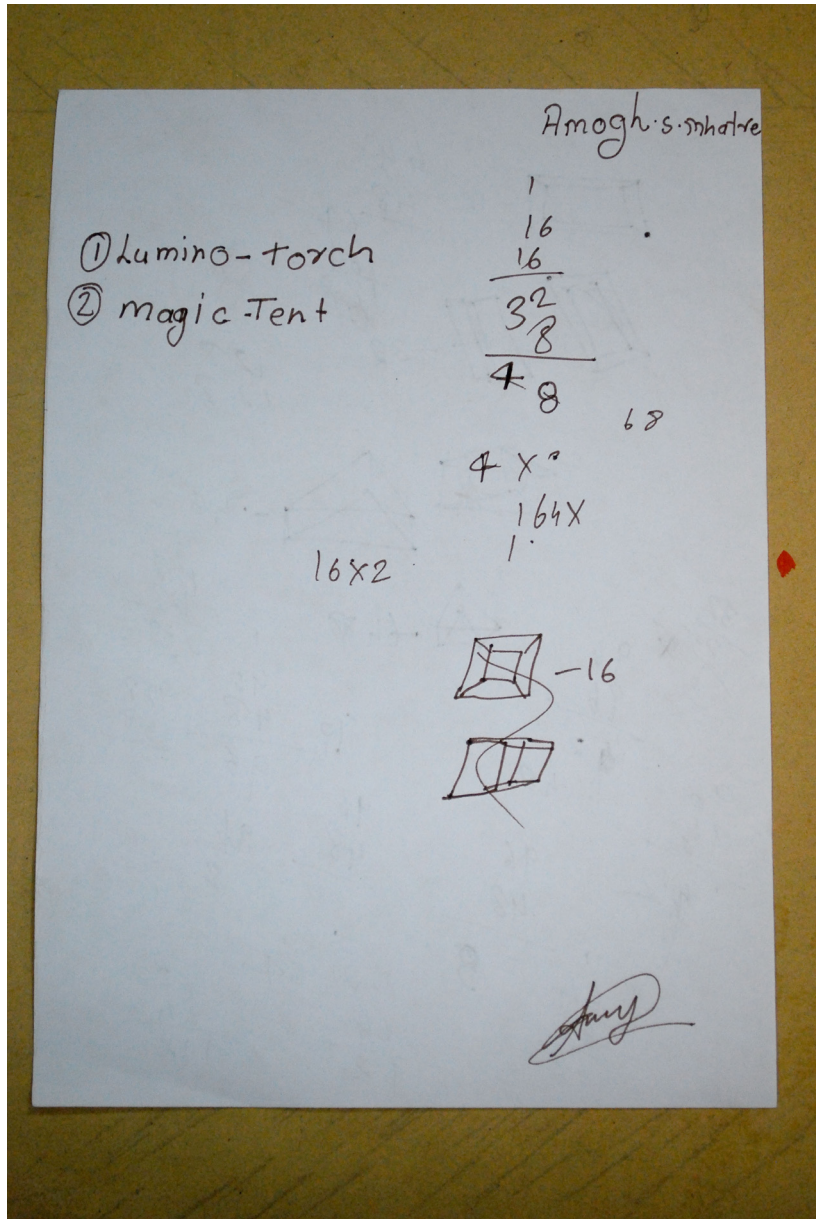 Amogh.s.mhatre
① Lumino-torch
② magic-Tent
1
16
16
32
8
48
68
4 x
164x
1
16x2
-16